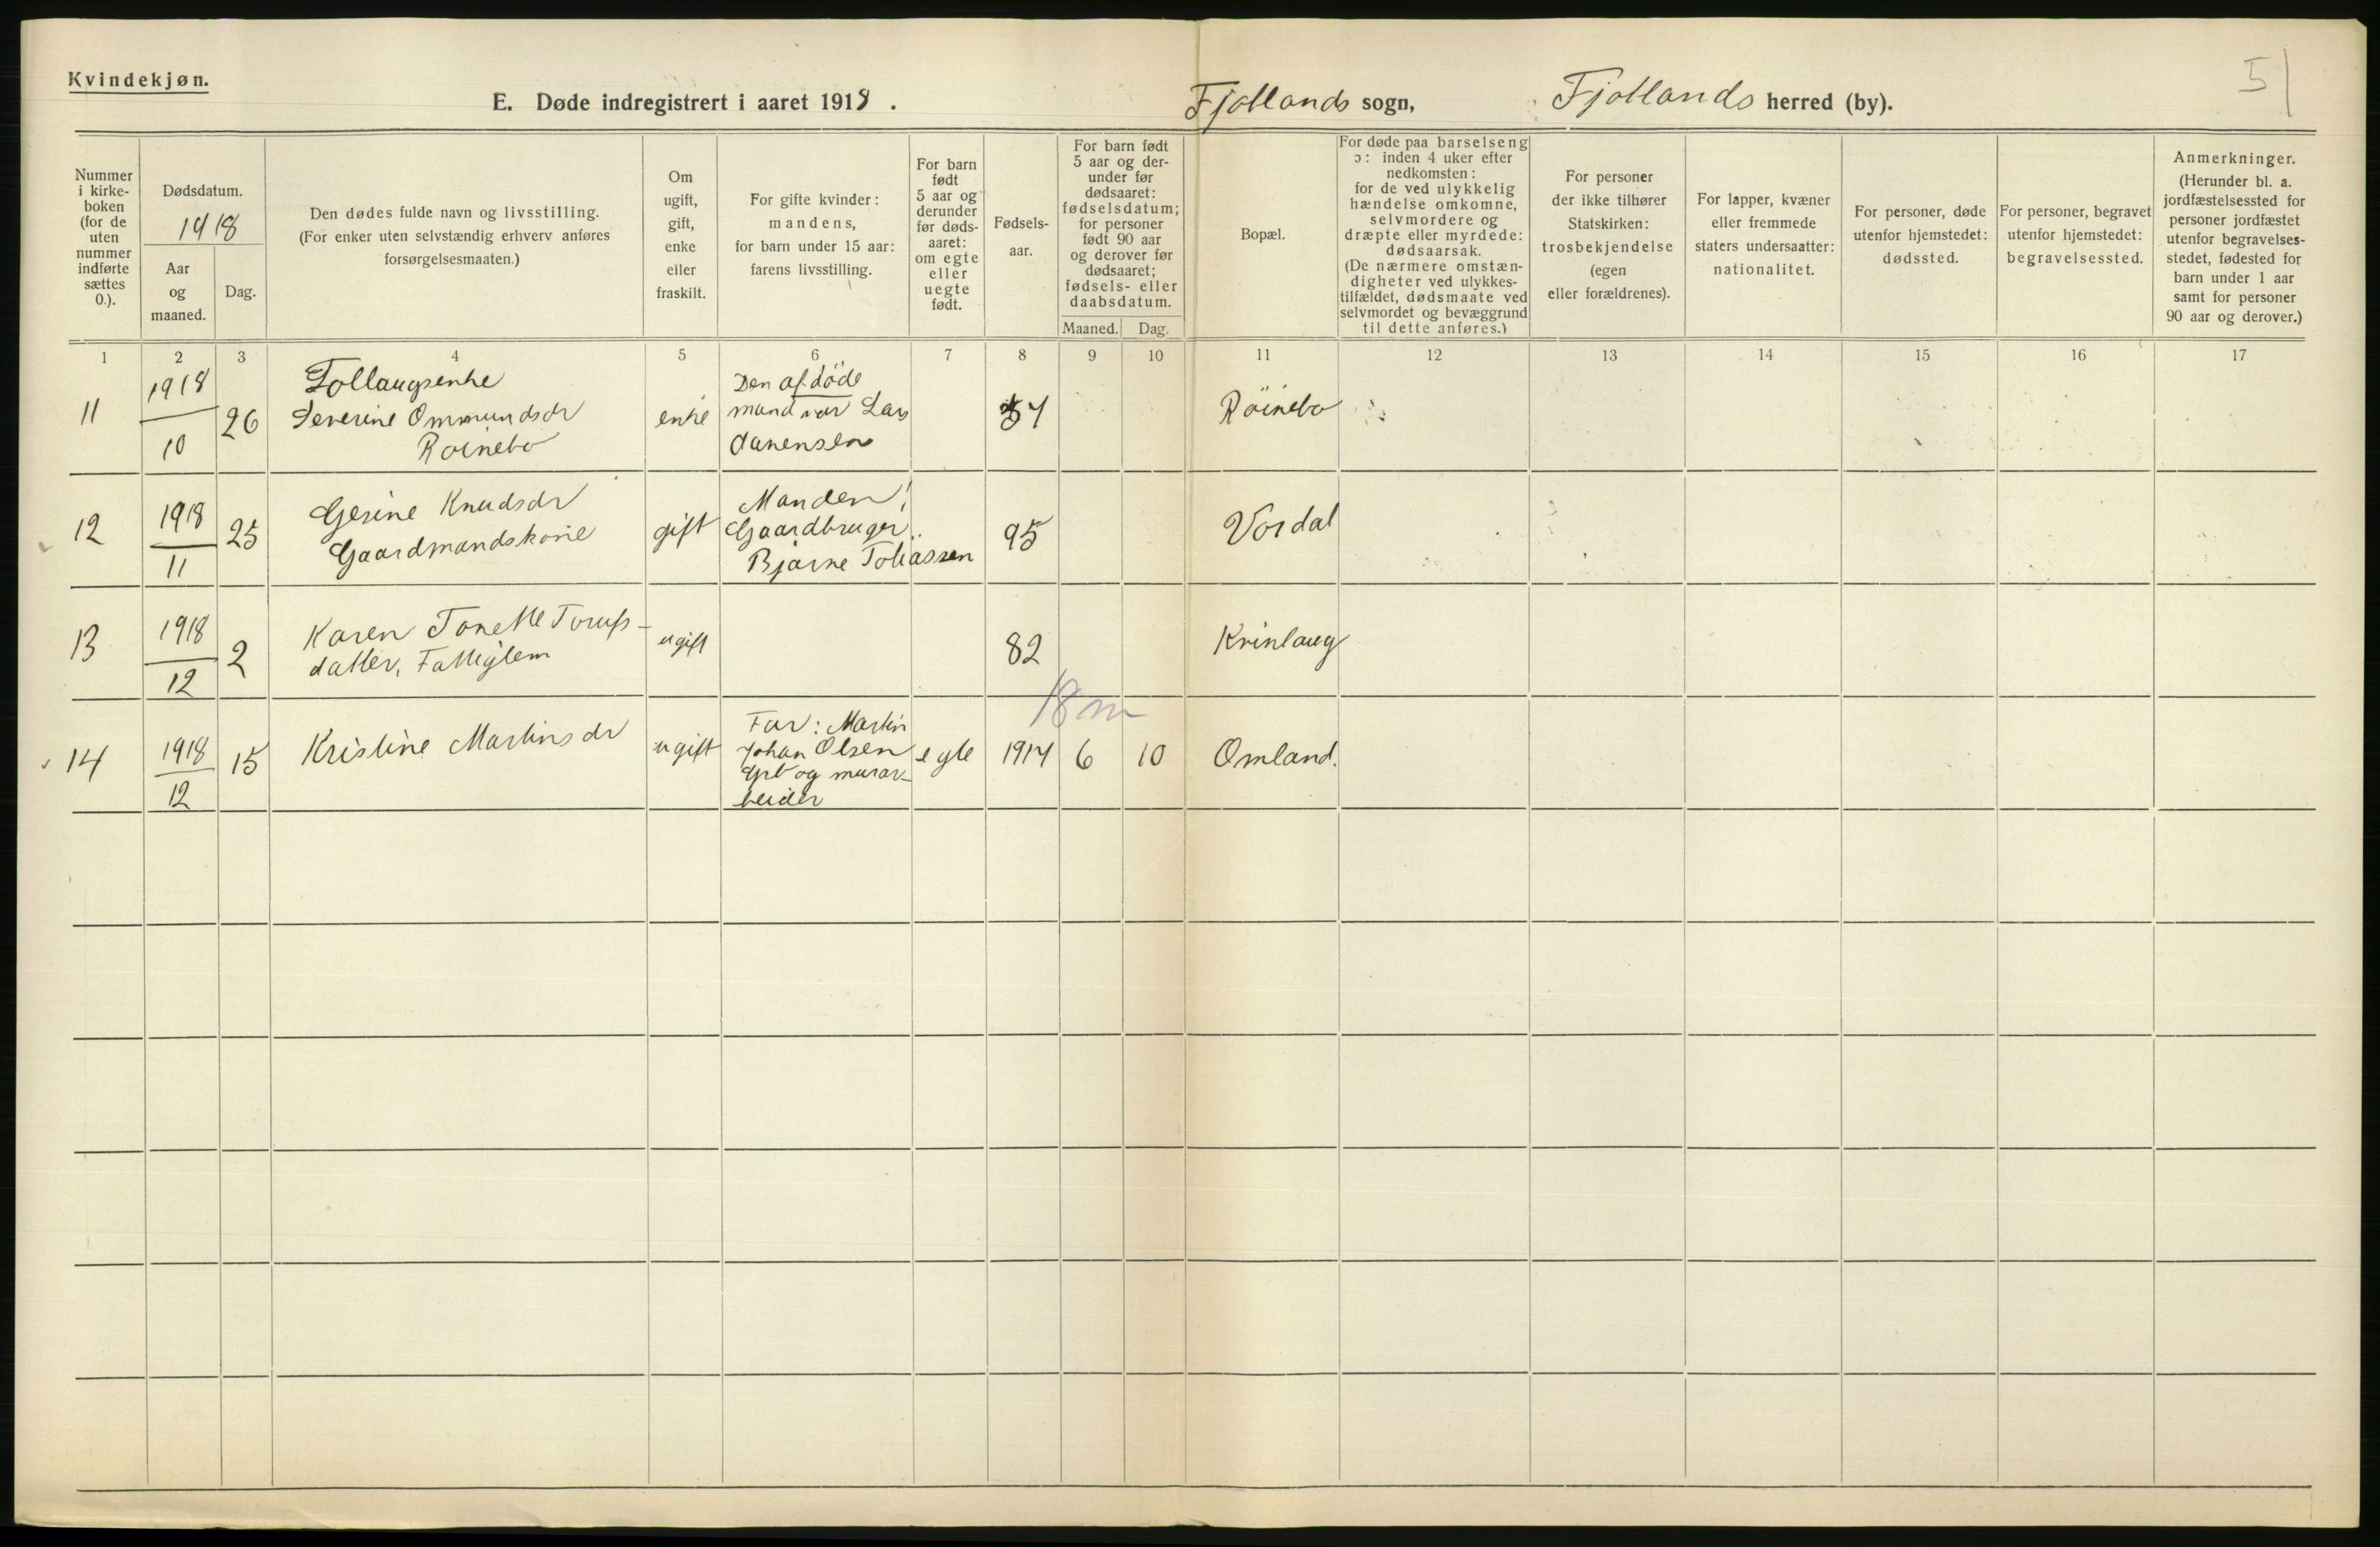 Kvindekjøn.
E. Døde indregistrert i aaret 1918.
Fjotlands sogn,
Fjotlands herred (by).
51
Nummer
i kirke-
boken
(for de
uten
nummer
indførte
sættes
0.).
Dødsdatum.
1918
Aar
og
maaned.
Dag.
Den dødes fulde navn og livsstilling.
(For enker uten selvstændig erhverv anføres
forsørgelsesmaaten.)
Om
ugift,
gift,
enke
eller
fraskilt.
For gifte kvinder:
mandens,
for barn under 15 aar:
farens livsstilling.
For barn
født
5 aar og
derunder
før døds-
aaret:
om egte
eller
uegte
født.
Fødsels-
aar.
For barn født
5 aar og der-
under før
dødsaaret:
fødselsdatum;
for personer
født 90 aar
og derover før
dødsaaret;
fødsels- eller
daabsdatum.
Maaned. Dag.
Bopæl.
For døde paa barselseng
ɔ: inden 4 uker efter
nedkomsten:
for de ved ulykkelig
hændelse omkomne,
selvmordere og
dræpte eller myrdede:
dødsaarsak.
(De nærmere omstæn-
digheter ved ulykkes-
tilfældet, dødsmaate ved
selvmordet og bevæggrund
til dette anføres.)
For personer
der ikke tilhører
Statskirken:
trosbekjendelse
(egen
eller forældrenes).
For lapper, kvæner
eller fremmede
staters undersaatter:
nationalitet.
For personer, døde
utenfor hjemstedet:
dødssted.
For personer, begravet
utenfor hjemstedet:
begravelsessted.
Anmerkninger.
(Herunder bl. a.
jordfæstelsessted for
personer jordfæstet
utenfor begravelses-
stedet, fødested for
barn under 1 aar
samt for personer
90 aar og derover.)
1 2 3 4 5 6 7 8 9 10 11 12 13 14 15 16 17
11
1918
10
26
Severine Ommundsdr
Roinebo
enke
Den afdöde
mand var Lars
57
Röinebo
12
1918
11
25
Gesine Knudsdr
Gaardmandskone
gift
Manden:
Gaardbruger
Bjarne Tobiassen
95
Vordal
13
1918
12
2
Karen Tonette
datter, Fattiglem
ugift
82
Kvinlaug
18 m
14
1918
12
15
Kristine Martinsdr
ugift
Far: Martin
Johan Olsen
Grb og murar-
beider
egte
1917
6
10
Omland.